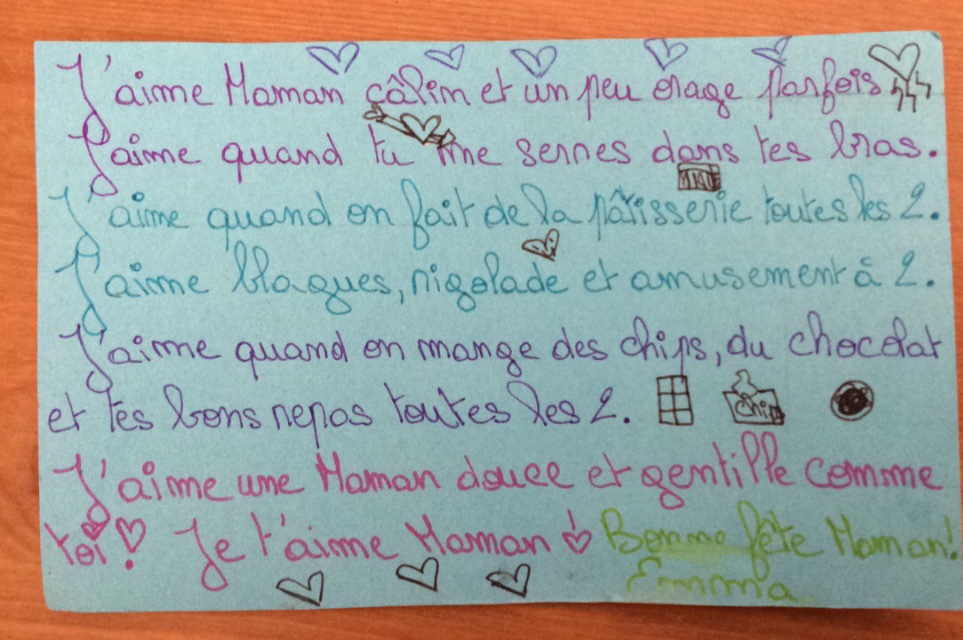 J'aime Maman câlin et un peu orage parfois
J'aime quand tu me serres dans tes bras.
J'aime quand on fait de la pâtisserie toutes les 2.
J'aime blagues, rigolade et amusement à 2.
J'aime quand on mange des chips, du chocolat
et tes bons repas toutes les 2.
chips
J'aime une Maman douce et gentille comme
toi! Je t'aime Maman Bonne fête Maman!
Emma